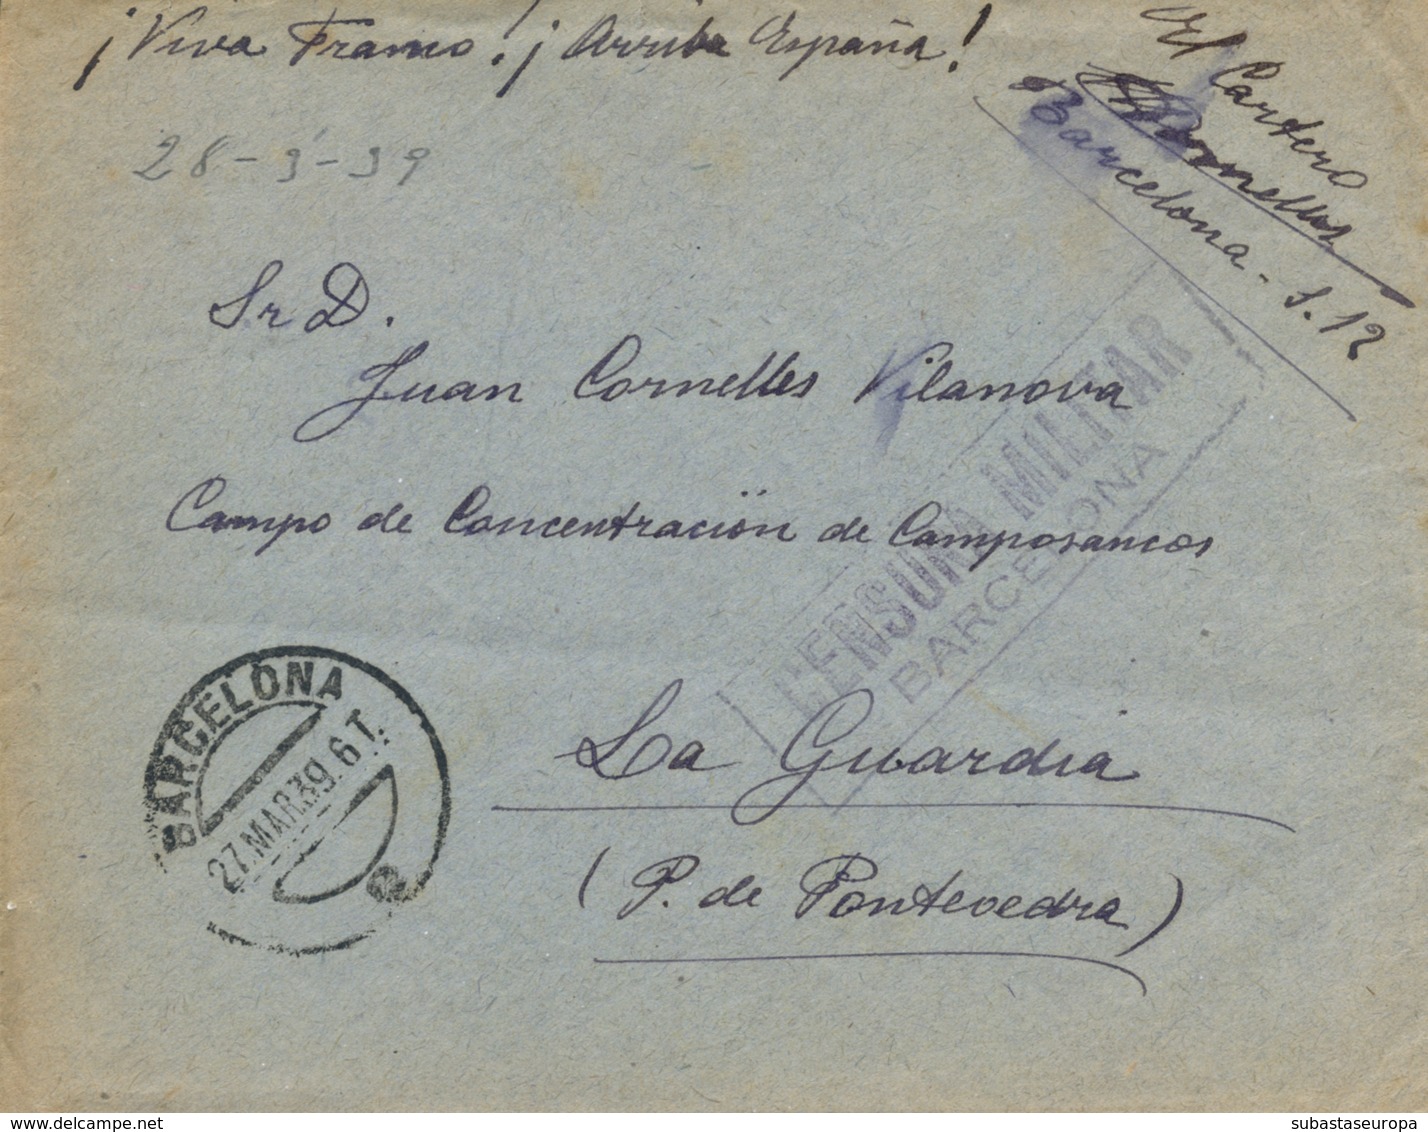 ¡Viva Franco! ¡Arriba España!
El Cartero
Cornelles
Barcelona - S.12
28-3-39
Sr D.
Juan Cornelles Vilanova
Campo de Concentración de Camposancos
CENSURA MILITAR
BARCELONA
BARCELONA
27.MAR39.6T.
La Guardia
(P. de Pontevedra)
www.delcampe.net
subastaseuropa